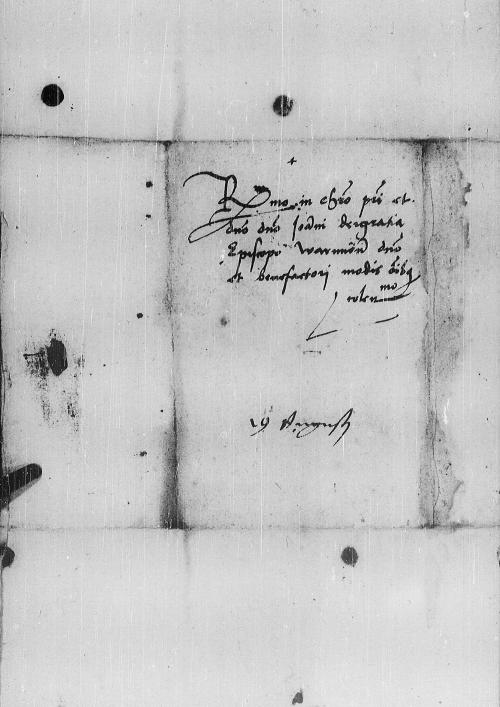 R mo in chro pri et
dno dno Joanni dei gratia
Episcopo warmien dno
et benefactori modis oibq
colen mo
19 Augusti